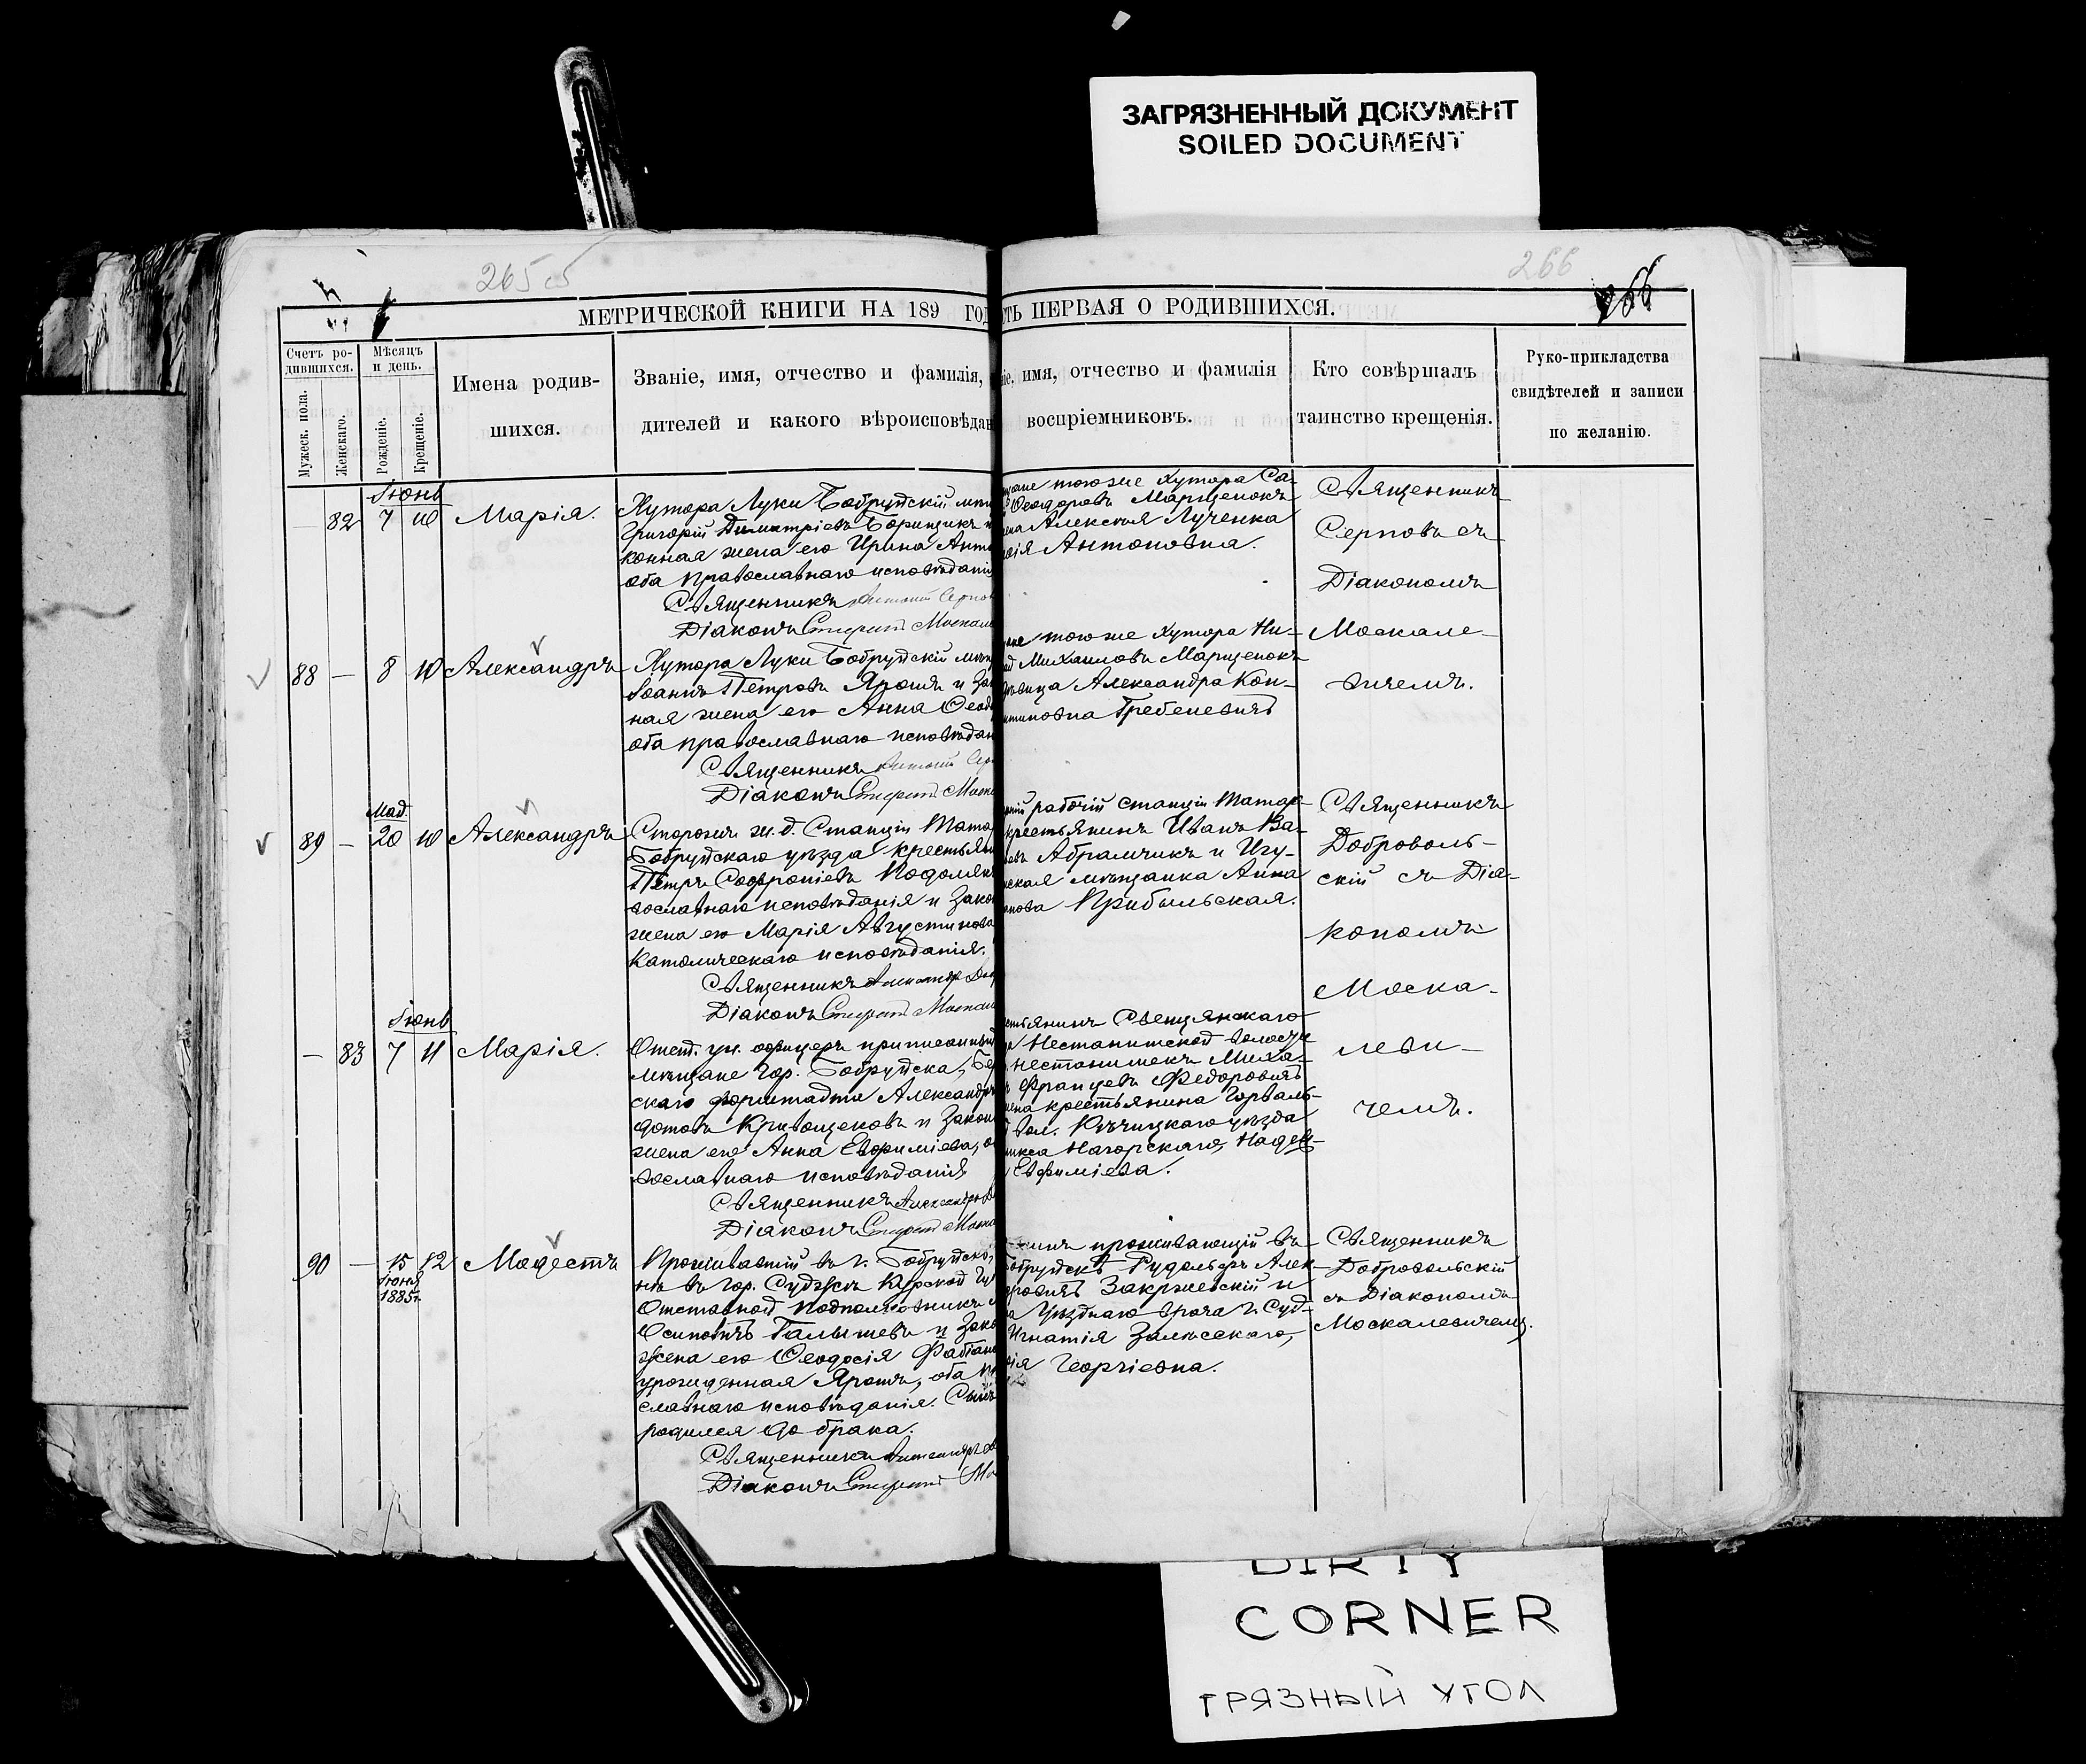 ЗАГРЯЗНЕННЫЙ ДОКУМЕНТ
SOILED DOCUMENT
265 об
266
МЕТРИЧЕСКОЙ КНИГИ НА 189 ГОД
ТЬ ПЕРВАЯ О РОДИВШИХСЯ.
Счетъ ро-
дившихся.
Мужеск. пола.
Женскаго.
Мѣсяцъ
и день.
Рожденіе.
Крещеніе.
Имена родив-
шихся.
Званіе, имя, отчество и фамилія,
дителей и какого вѣроисповѣдан
іе, имя, отчество и фамилія
воспріемниковъ.
Кто совѣршалъ
таинство крещенія.
Руко-прикладства
свидѣтелей и записи
по желанію.
Іюнь
82 7 10 Марія.
Хутора Луки Бобруйскій мѣщ
Григорій Димитріевъ Борищикъ и
конная жена его Ирина Анто
оба православнаго исповѣданія
Священникъ Антоній Серно
Діаконъ Спирид Москале
щане тогоже хутора Са-
Ѳеодоровъ Марценокъ
ена Алексѣя Лученка
рія Антоновна.
Священникъ
Серновъ съ
Діакономъ
Москале-
вичемъ.
88 — 8 10 Александръ
Хутора Луки Бобруйскій мѣщ
Іоаннъ Петровъ Ярошъ и Зак
ная жена его Анна Ѳеод
оба православнаго исповѣдан
Священникъ Антоній Сер
Діаконъ Спирид Моска
ане тогоже хутора Ни-
Михаиловъ Марценокъ
дѣвица Александра Кон-
стиновна Гребеневичъ
Май.
89 — 20 10 Александръ
Сторожъ ж. д. Станціи Тата
Бобруйскаго уѣзда крестьян
Петръ Софроніевъ Подоляк
вославнаго исповѣданія и Зако
жена его Марія Августинова
Католическаго исповѣданія.
Священникъ Александръ Доб
Діаконъ Спирид Москале
рабочій станціи Татар-
крестьянинъ Иванъ Ва-
евъ Абрамчикъ и Игу-
нская мѣщанка Анна
онова Прибыльская.
Священникъ
Доброволь-
скій съ Діа-
кономъ
Моска-
леви-
чемъ.
Іюнь
— 83 7 11 Марія.
Отст. ун. офицеръ приписанный
мѣщане гор. Бобруйска, Бер
скаго форштадта Александръ
дотовъ Кривощековъ и Закон
жена его Анна Евфиміева, о
вославнаго исповѣданія
Священникъ Александръ Д
Діаконъ Спирид Моска
стьянинъ Свенцянскаго
Нестанишской волости
Нестанишекъ Миха-
Францевъ Федоровичъ
жена крестьянина Горваль-
вол. Рѣчицкаго уѣзда
Нагорскаго, Надеж-
Евфиміева.
90 — 15 12 Модестъ
Іюня
1885г.
Проживавшій въ г. Бобруйскѣ,
нѣ въ гор. Суджѣ Курской Губ
Отставной Подполковникъ
Осиповичъ Галышевъ и Зако
жена его Ѳеодосія Фабіано
урожденная Ярошъ, оба пр
славнаго исповѣданія. Сынъ
родился до брака.
Священникъ Александръ Д
Діаконъ Спирид Мо
проживающій въ
Бобруйскѣ Рудольфъ Алек-
дровичъ Закржевскій и
Уѣзднаго врача г. Суд-
Игнатія Залѣсскаго,
Георгіевна.
Священникъ
Добровольскій
съ Діакономъ
Москалевичемъ.
DIRTY
CORNER
ГРЯЗНЫЙ УГОЛ